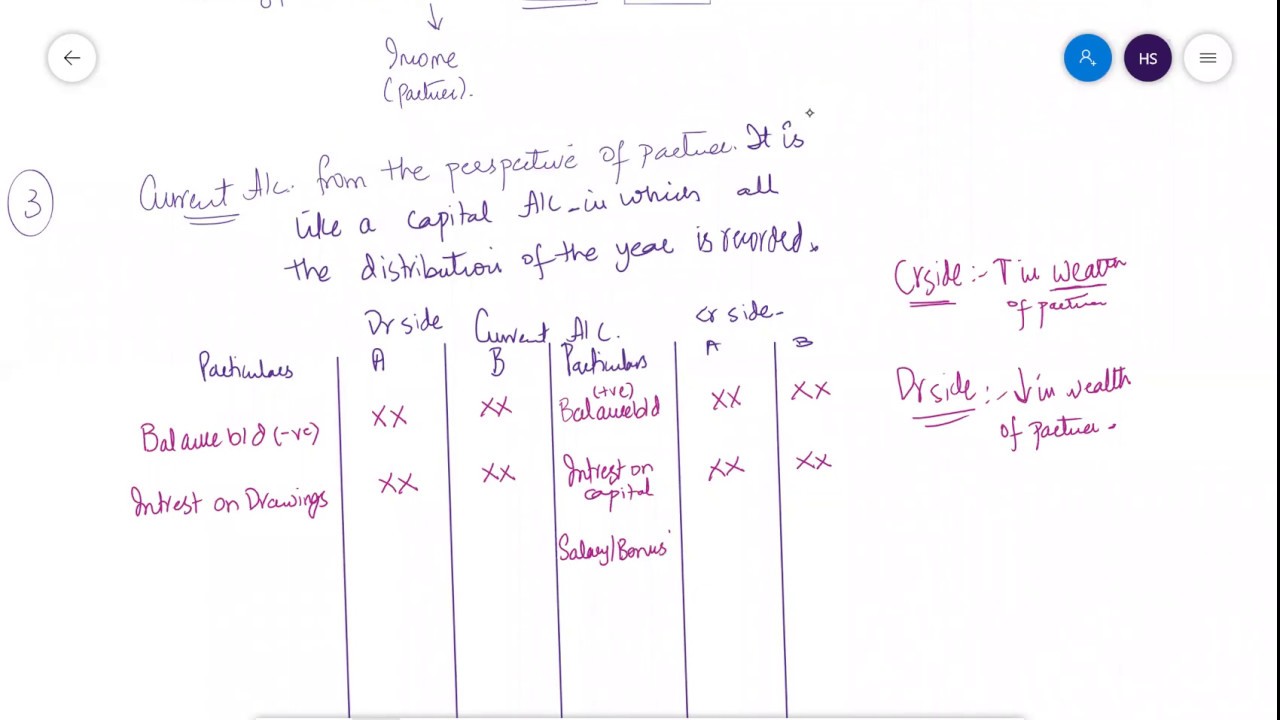 Income
(partner).
HS
3
Current A/c. from the perspective of partner. It is
like a capital A/C - in which all
the distribution of the year is recorded.
Cr side :- ↑ in wealth
of partner
Dr side Current A/C. Cr side-
Particulars A B Particulars A B
Balance b/d (-ve) XX XX (+ve)
Balance b/d XX XX
Intrest on Drawings XX XX Intrest on
capital XX XX
Salary/Bonus
Dr side :- ↓ in wealth
of partner.